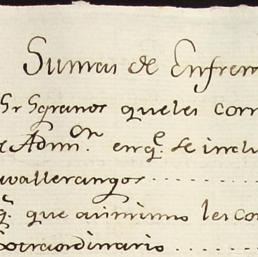 Sumas de Enfrero
Sr Sgranos queles corr
Admn.on enq.e se inclu
wallerangos
q.e que asimismo les co
extraordinario